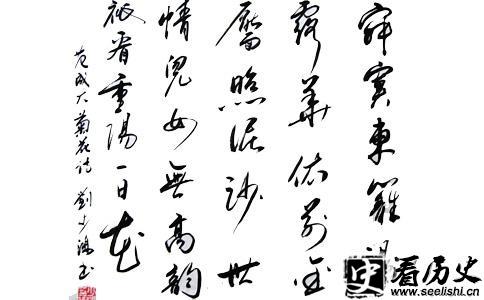 寂寞東籬
露華依前金
靨照泥沙世
情兒女無高韻
祇看重陽一日花
范成大菊花詩 劉少
史 看历史
www.seelishi.cn